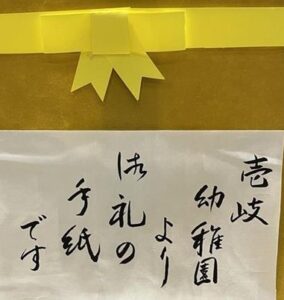 壱岐
幼稚園
より
御礼の
手紙
です